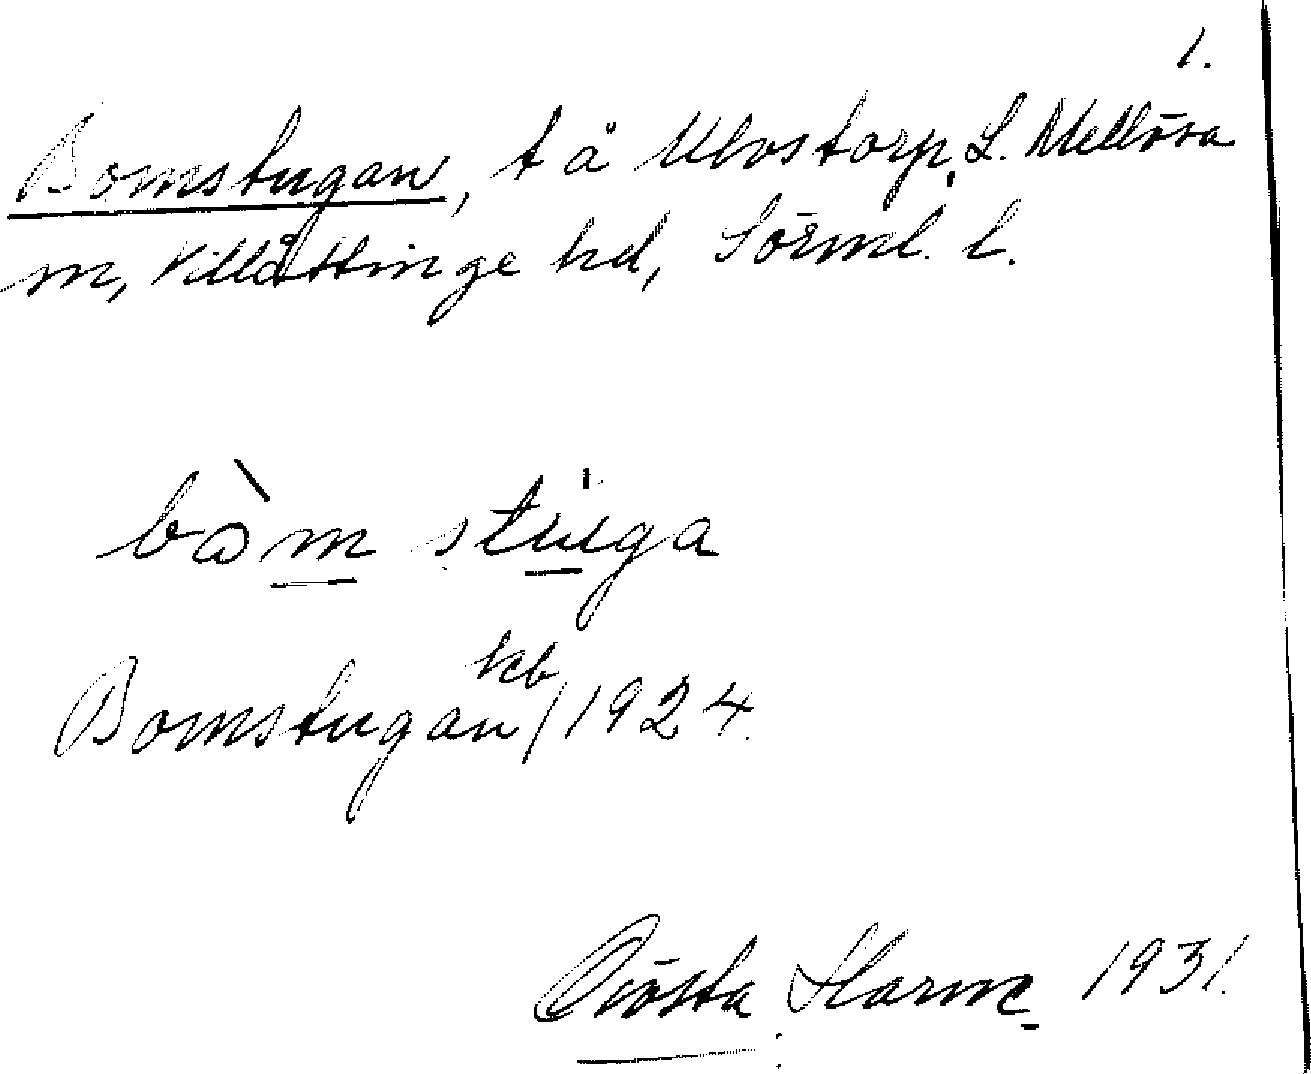 1.
Bomstugan, t å Ulvstorp, L. Mellösa
sn, Villåttinge hd, Sörml. l.
bòm stuga
kb
Bomstugan/1924.
Gösta 1931.